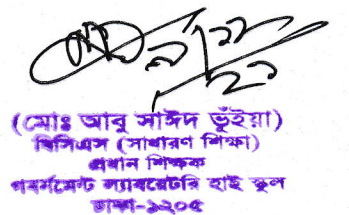 (মোঃ আবু সাঈদ ভূঁইয়া)
বিসিএস (সাধারণ শিক্ষা)
প্রধান শিক্ষক
গবর্নমেন্ট ল্যাবরেটরি হাই স্কুল
ঢাকা-১২০৫